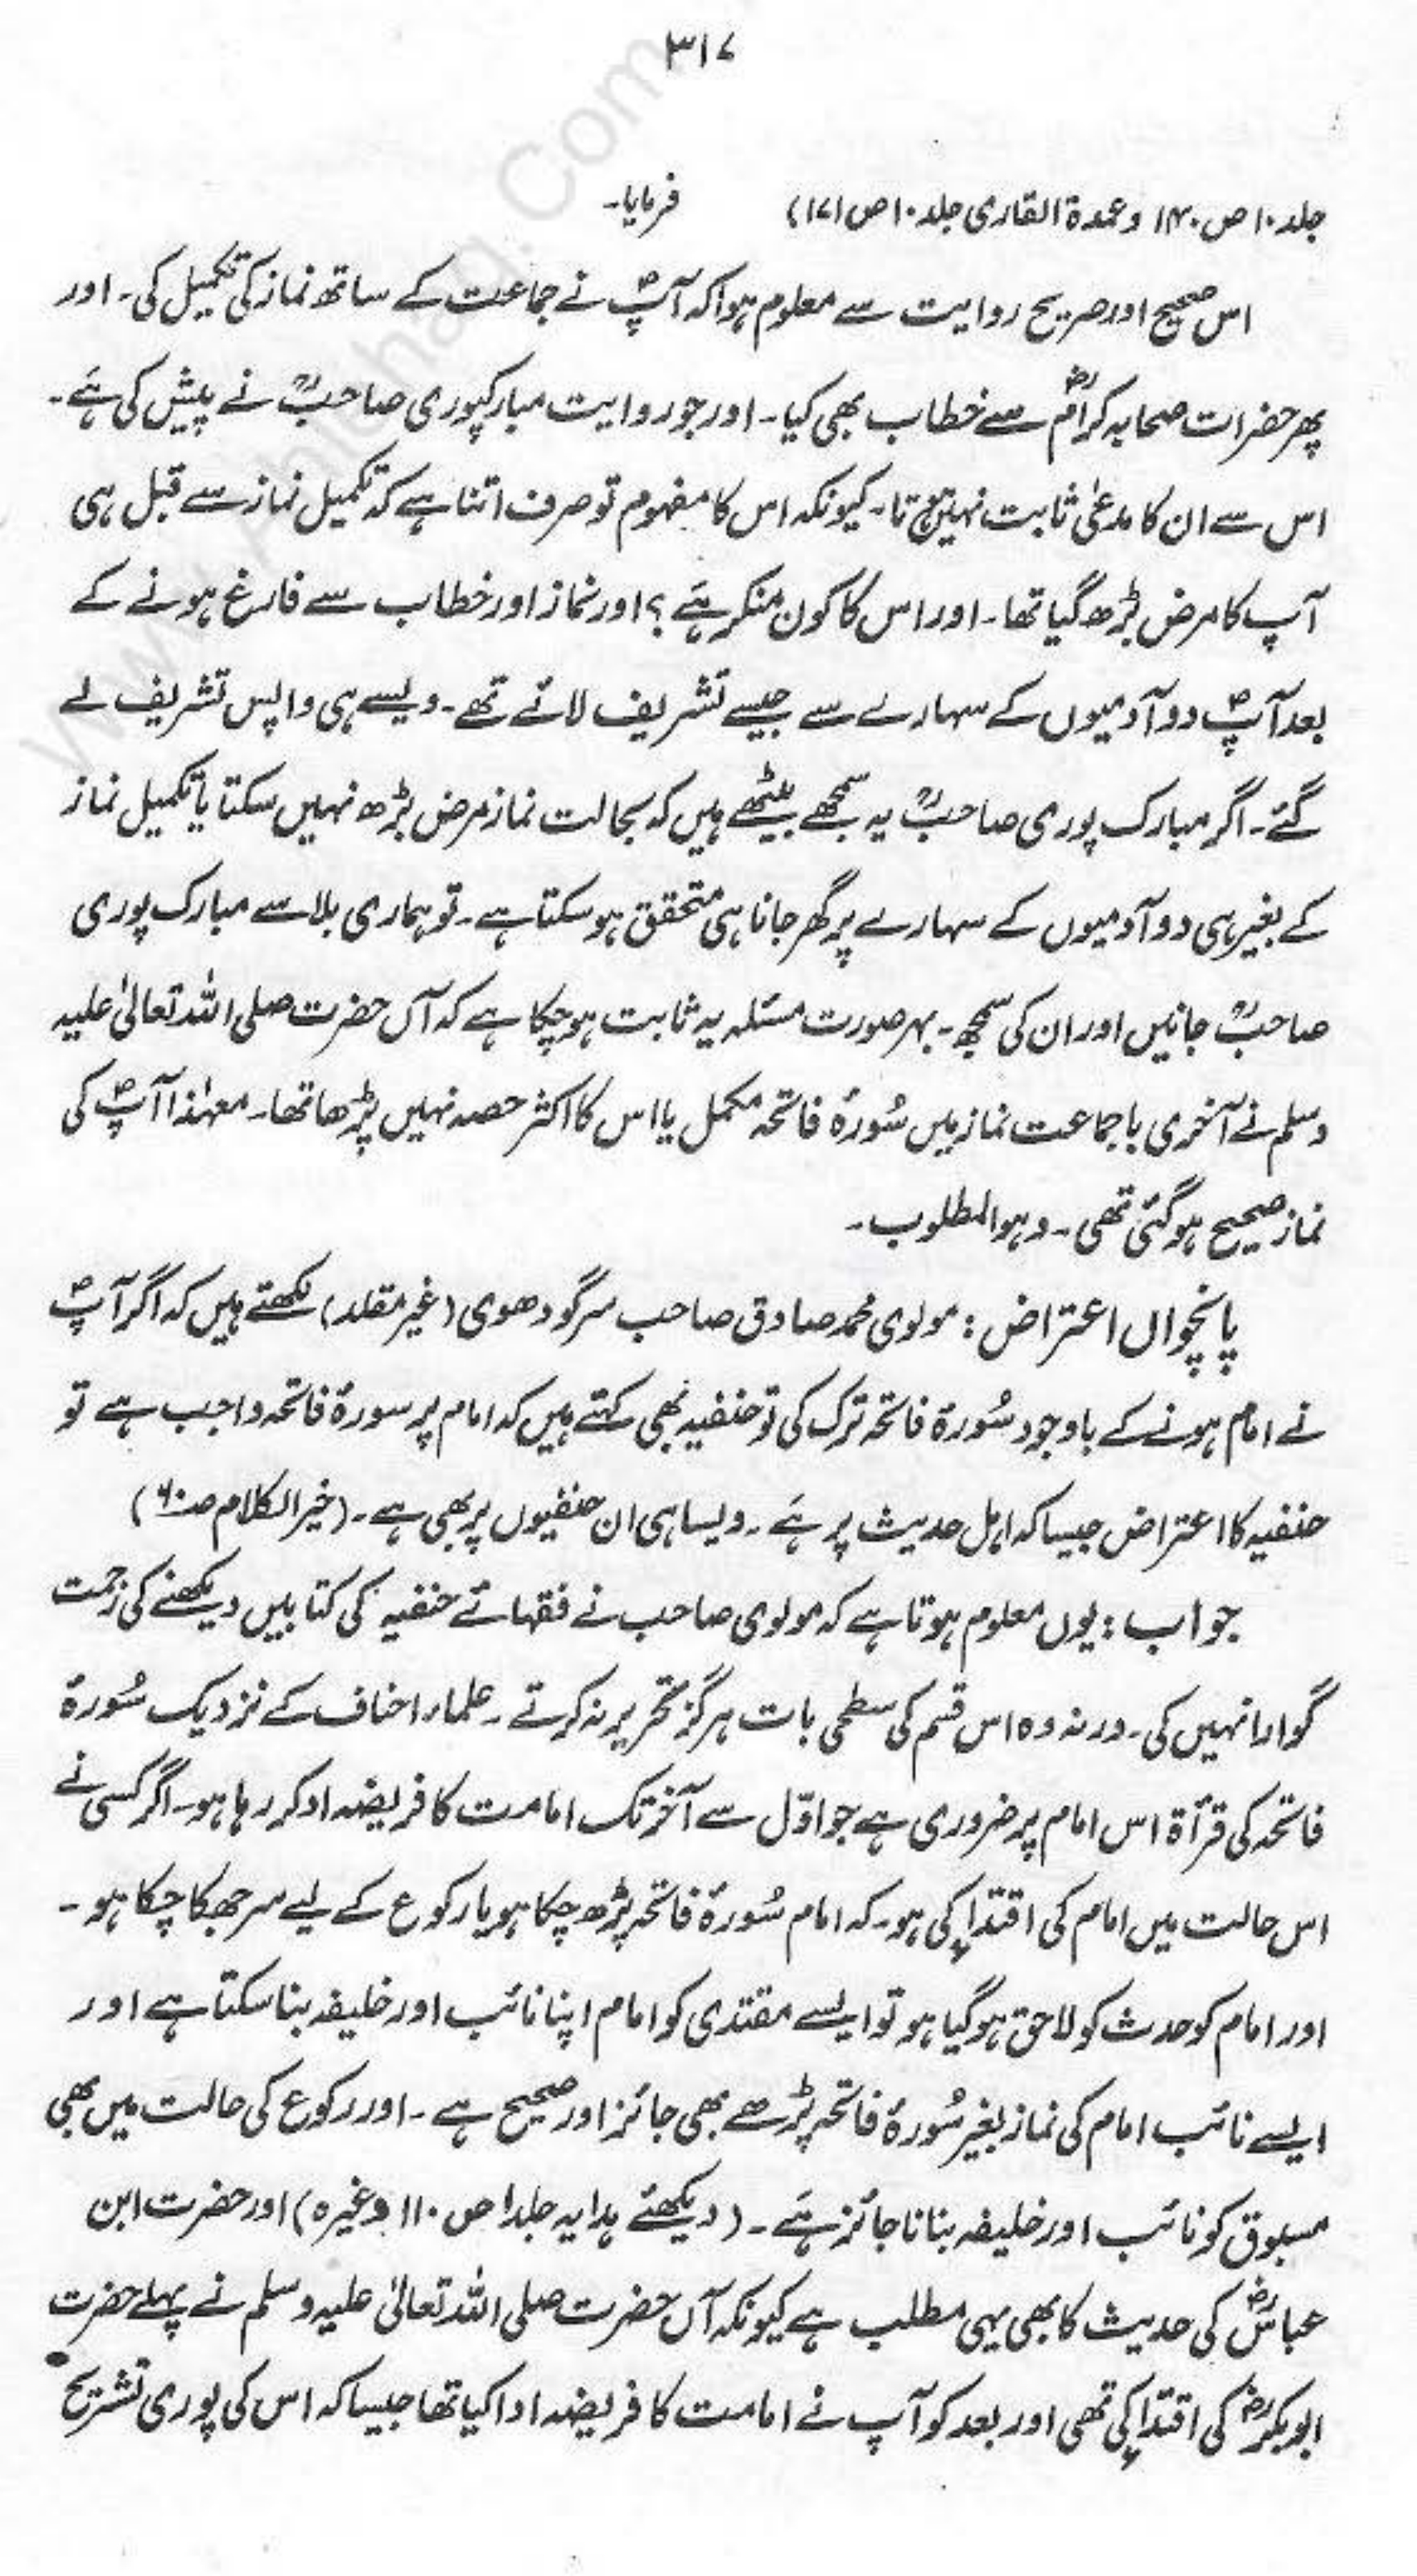 ۳۱۷
جلد۱۰ ص۱۴۰ و عمدة القاری جلد۱۰ ص۱۷۱) فرمایا۔
اس صحیح اور صریح روایت سے معلوم ہوا کہ آپؐ نے جماعت کے ساتھ نماز کی تکمیل کی۔ اور
پھر حضرات صحابہ کرامؓ سے خطاب بھی کیا۔ اور جو روایت مبارکپوری صاحبؒ نے پیش کی ہے۔
اس سے ان کا مدعیٰ ثابت نہیں ہوتا۔ کیونکہ اس کا مفہوم تو صرف اتنا ہے کہ تکمیل نماز سے قبل ہی
آپ کا مرض بڑھ گیا تھا۔ اور اس کا کون منکر ہے؟ اور نماز اور خطاب سے فارغ ہونے کے
بعد آپؐ دو آدمیوں کے سہارے سے جیسے تشریف لائے تھے۔ ویسے ہی واپس تشریف لے
گئے۔ اگر مبارک پوری صاحبؒ یہ سمجھے بیٹھے ہیں کہ بحالت نماز مرض بڑھ نہیں سکتا یا تکمیل نماز
کے بغیر ہی دو آدمیوں کے سہارے پر گھر جانا ہی متحقق ہو سکتا ہے۔ تو ہماری بلا سے مبارک پوری
صاحبؒ جانیں اور ان کی سمجھ۔ بہر صورت مسئلہ یہ ثابت ہو چکا ہے کہ آں حضرت صلی اللہ تعالیٰ علیہ
وسلم نے آخری با جماعت نماز میں سُورۂ فاتحہ مکمل یا اس کا اکثر حصہ نہیں پڑھا تھا۔ معہٰذا آپؐ کی
نماز صحیح ہو گئی تھی۔ وہو المطلوب۔
پانچواں اعتراض: مولوی محمد صادق صاحب سرگودھوی (غیر مقلد) لکھتے ہیں کہ اگر آپؐ
نے امام ہونے کے باوجود سُورۃ فاتحہ ترک کی تو حنفیہ بھی کہتے ہیں کہ امام پر سورۂ فاتحہ واجب ہے تو
حنفیہ کا اعتراض جیسا کہ اہل حدیث پر ہے۔ ویسا ہی ان حنفیوں پر بھی ہے۔ (خیر الکلام صـ۶۰)
جواب: یوں معلوم ہوتا ہے کہ مولوی صاحب نے فقہائے حنفیہ کی کتابیں دیکھنے کی زحمت
گوارا نہیں کی۔ ورنہ وہ اس قسم کی سطحی بات ہرگز تحریر نہ کرتے۔ علماء احناف کے نزدیک سُورۂ
فاتحہ کی قرأۃ اس امام پر ضروری ہے جو اوّل سے آخر تک امامت کا فریضہ ادا کر رہا ہو۔ اگر کسی نے
اس حالت میں امام کی اقتداء کی ہو۔ کہ امام سُورۂ فاتحہ پڑھ چکا ہو یا رکوع کے لیے سر جھکا چکا ہو۔
اور امام کو حدث کو لاحق ہو گیا ہو تو ایسے مقتدی کو امام اپنا نائب اور خلیفہ بنا سکتا ہے اور
ایسے نائب امام کی نماز بغیر سُورۂ فاتحہ پڑھے بھی جائز اور صحیح ہے۔ اور رکوع کی حالت میں بھی
مسبوق کو نائب اور خلیفہ بنانا جائز ہے۔ (دیکھئے ہدایہ جلد۱ ص۱۱۰ وغیرہ) اور حضرت ابن
عباسؓ کی حدیث کا بھی یہی مطلب ہے کیونکہ آں حضرت صلی اللہ تعالیٰ علیہ وسلم نے پہلے حضرت
ابوبکرؓ کی اقتداء کی تھی اور بعد کو آپ نے امامت کا فریضہ ادا کیا تھا جیسا کہ اس کی پوری تشریح